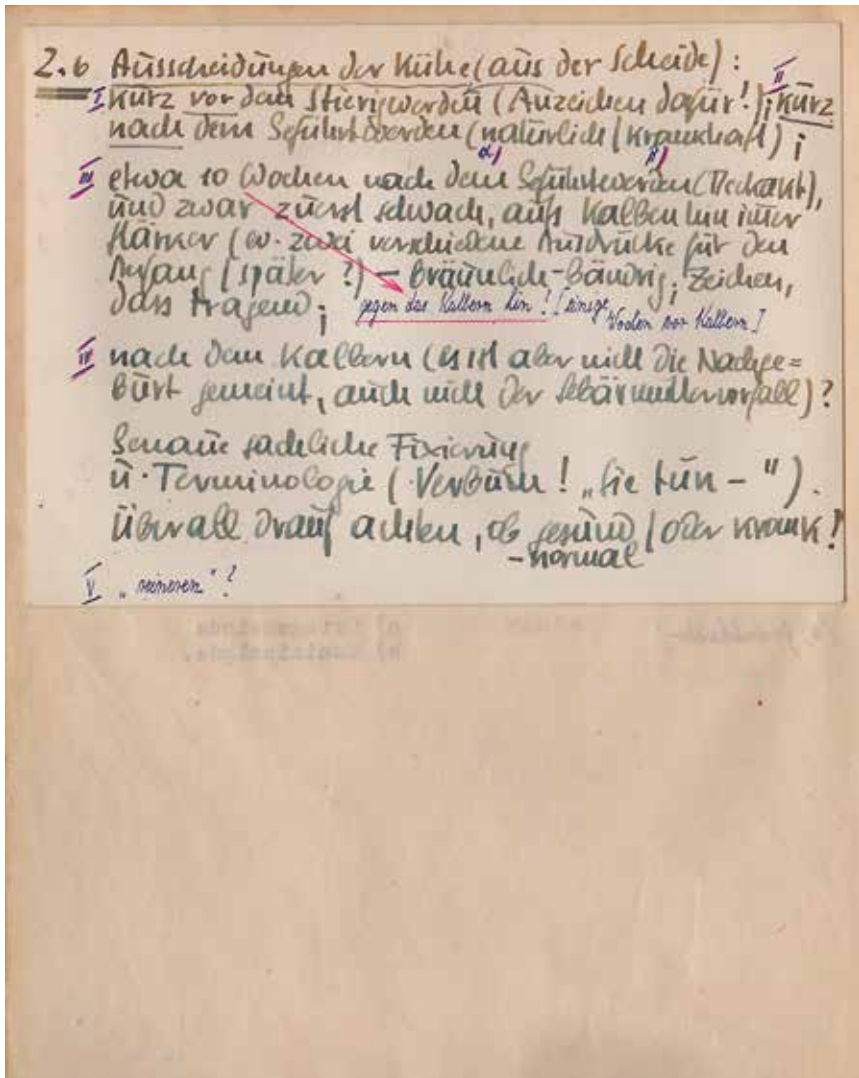 2.6 Ausscheidungen der Kühe (aus der Scheide):
I kurz vor dem Stierigwerden (Anzeichen dafür!); II kurz
nach dem Geführtwerden (natürlich / krankhaft);
α) β)
III etwa 10 Wochen nach dem Geführtwerden (Deckakt),
und zwar zuerst schwach, aufs Kalben hin immer
stärker (ev. zwei verschiedene Ausdrücke für den
Anfang / später?) – bräunlich-bändrig; Zeichen,
dass tragend;
gegen das Kalbern hin! [einige
Wochen vor Kalbern]
IV nach dem Kalbern (es ist aber nicht die Nachge=
burt gemeint, auch nicht der Gebärmuttervorfall)?
Genaue sachliche Fixierung
u. Terminologie (Verbum! „sie tun – ").
Überall drauf achten, ob gesund / oder krank!
– normal
V „reineren"?
a)
b)